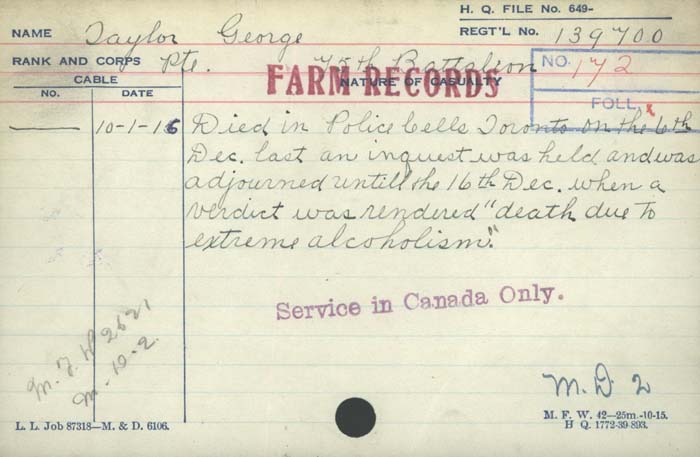 H. Q. FILE No. 649-
NAME Taylor George REGT'L No. 139700
RANK AND CORPS Pte. 75th Battalion
NO. 172
CABLE
FARM RECORDS
NATURE OF CASUALTY
No. DATE
FOLL.
10-1-16 Died in Police Cells Toronto on the 6th
Dec. last an inquest was held and was
adjourned untill the 16th Dec. when a
verdict was rendered "death due to
extreme alcoholism".
Service in Canada Only.
M. D. 2
L. L. Job 87318—M. & D. 6106.
M. F. W. 42—25m.-10-15.
H Q. 1772-39-893.